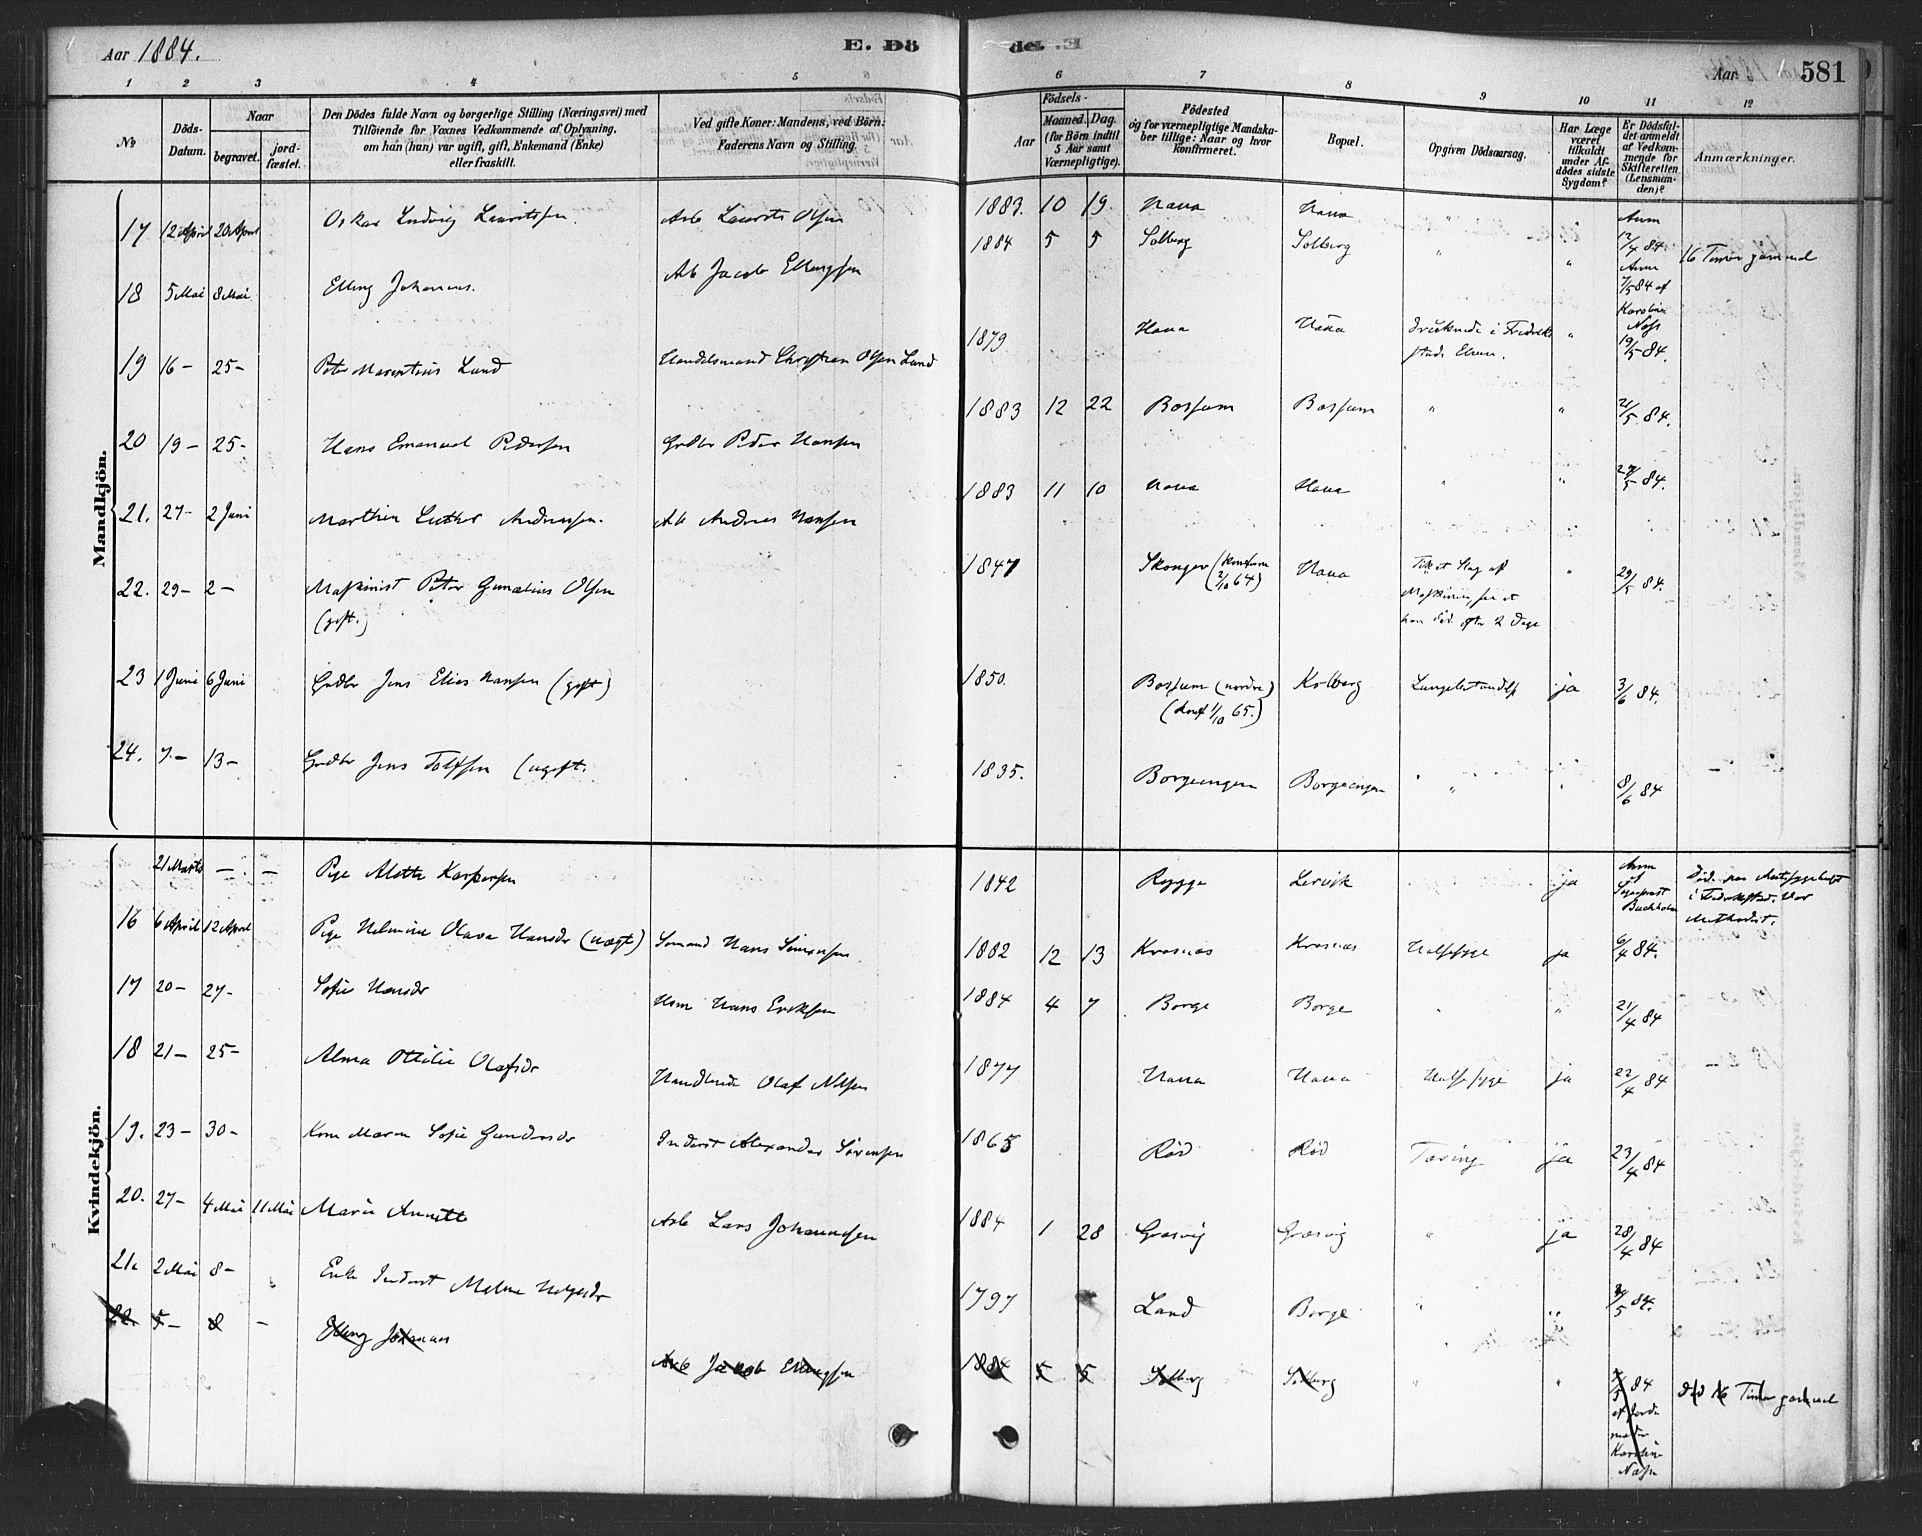 Aar 1884. E. Dö
1 2 3 4 5
№ Döds-Datum. Naar begravet. jord-fæstet. Den Dödes fulde Navn og borgerlige Stilling (Næringsvei) med Tilföiende for Voxnes Vedkommende af Oplysning, om han (hun) var ugift, gift, Enkemand (Enke) eller fraskilt. Ved gifte Koner: Mandens, ved Börn: Faderens Navn og Stilling.
Mandkjön.
17 12 April 20 April Oskar Ludvig Lauritssen. Arb Laurits Olsen
18 5 Mai 8 Mai Elling Johannes. Arb Jacob Ellingsen
19 16 – 25 – Peter Marentius Lund Handelsmand Christian Olsen Lund
20 19 – 25 – Hans Emanuel Pedersen Grdbr Peder Hansen
21. 27 – 2 Juni Marthin Luther Andreassen. Arb Andreas Hansen
22. 29 – 2 – Maskinist Peter Olsen
(gift.)
23 1 Juni 6 Juni Grdbr Jens Elias Hansen (gift)
24. 7 – 13 – Grdbr Jens Tolfsen (ugift.
Kvindekjön.
21 Marts – – Pige Alette Kaspersen
16 6 April 12 April Pige Helmine Olava Hansdr Sömand Hans Simensen
17 20 – 27 – Sofie Hansdr Hsm Hans Eriksen
18 21 – 25 – Alma Otilie Olafsdr Handlende Olaf Nilsen
19. 23 – 30 – Kone Maren Sofie Gundersdr Inderst Alexander Sörensen
20. 27 – 4 Mai 11 Mai Marie Annette Arb Lars Johannesen
21. 2 Mai 8 – Enke Inderst
22. 5 – 8 – Elling Johannes Arb Jacob Ellingsen
E. Dö Aar 581
6 7 8 9 10 11 12
Födsels- Aar Maaned. Dag. (for Börn indtil 5 Aar samt Værnepligtige). Födested og for værnepligtige Mandska-ber tillige: Naar og hvor konfirmeret. Bopæl. Opgiven Dödsaarsag. Har Læge været tilkaldt under Af-dödes sidste Sygdom? Er Dödsfal-det anmeldt af Vedkom-mende for Skifteretten (Lensman-den)? Anmærkninger.
1883. 10 19. Haua Haua " " Anm 12/4 84.
1884 5 5 Solberg Solberg " " Anm 7/5 84 af Karoline Næss 16 Timer gammel
1879 Haua Haua druknede i Fredrik-stads Elven. " 19/5 84.
1883 12 22 Bossum Bossum " " 21/5 84.
1883 11 10 Haua Haua " " 27/5 84.
1847 (konfirm 2/10 64) Haua Slag af
Maskinen,
han död efter 2 Dage " 29/5 84.
1850. Bossum (nordre)
(konf 1/10 65.) Kolberg Lungebetændelse ja 3/6 84.
1835. Borgeengen Borgeengen " " 8/6 84
1842 Rygge Lervik ja Anm af Sogneprest Buchholm Död paa
i Fredrikstad. Var
Methodist.
1882 12 13 Krosnæs Krosnæs Halssyge ja 6/4 84.
1884 4 7 Borge Borge " " 21/4 84
1877 Haua Haua Halssyge ja 22/4 84
1865 Röd Röd Tæring ja 23/4 84
1884 1 28 Græsvig Græsvig " ja 28/4 84
1797 Land Borge " " 2/5 84.
1884 5 5 Solberg Solberg " " 7/5 84
af Jorde
moder
Karoline
Næss död 16 Timer gammel